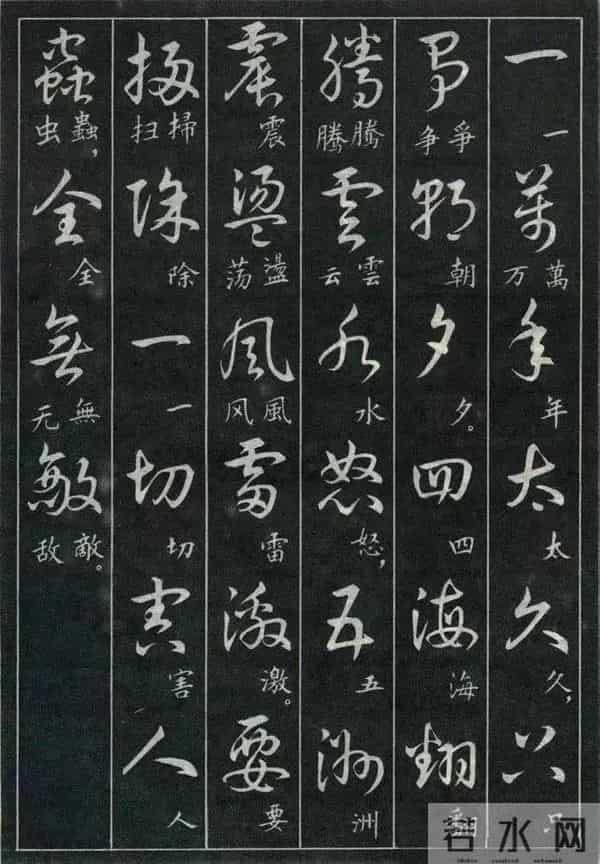 一萬年太久只
一 萬 万 年 太 久， 只
爭朝夕四海翻
爭 争 朝 夕。 四 海 翻
騰雲水怒五洲
騰 腾 雲 云 水 怒， 五 洲
震盪風雷激要
震 盪 荡 風 风 雷 激。 要
掃除一切害人
掃 扫 除 一 切 害 人
蟲全無敵
蟲， 虫 全 無 无 敵。 敌
若水网